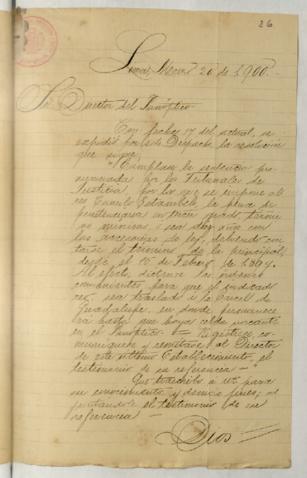 26
Lima, Marzo 20 de 1900.
Sr. Director del Panóptico
Con fecha 17 del actual, se
expidió por este Despacho la resolución
que sigue:
"Cumplase la sentencia pro
nunciada por los Tribunales de
Justicia por la que se impone al
reo Camilo la pena de
penitenciaria en grado término
, o sea años con
las accesorias de ley, debiendo con
tarse el termino de la principal,
desde el 15 de Febrero de
Al efecto, dictense las órdenes
convenientes para que el indicado
reo, sea trasladado a la Carcel de
Guadalupe, en donde permanecera
hasta que haya celda vacante
en el Panóptico — Registrese, co
muniquese y remitase al Director
de este último Establecimiento, el
testimonio de su referencia — "
Que trascribo a Ud. para
su conocimiento y demás fines, ad
juntandole el testimonio de su
referencia —
Dios